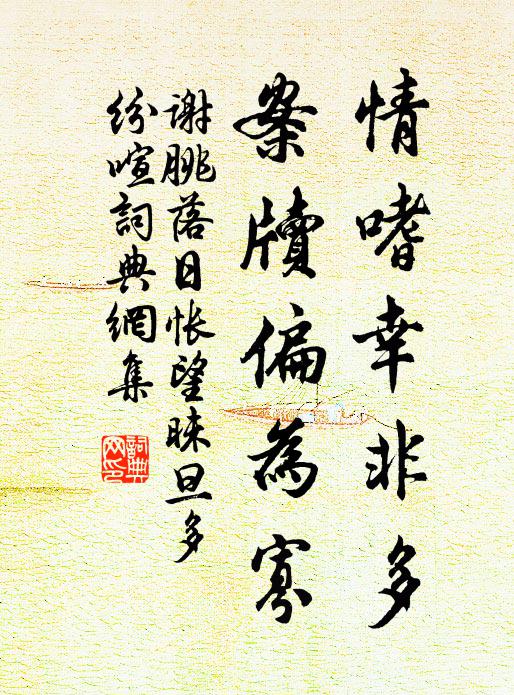 情嗜幸非多
案牘偏為寡
謝朓落日怅望昧旦多
紛喧詞典網集
詞典
网印